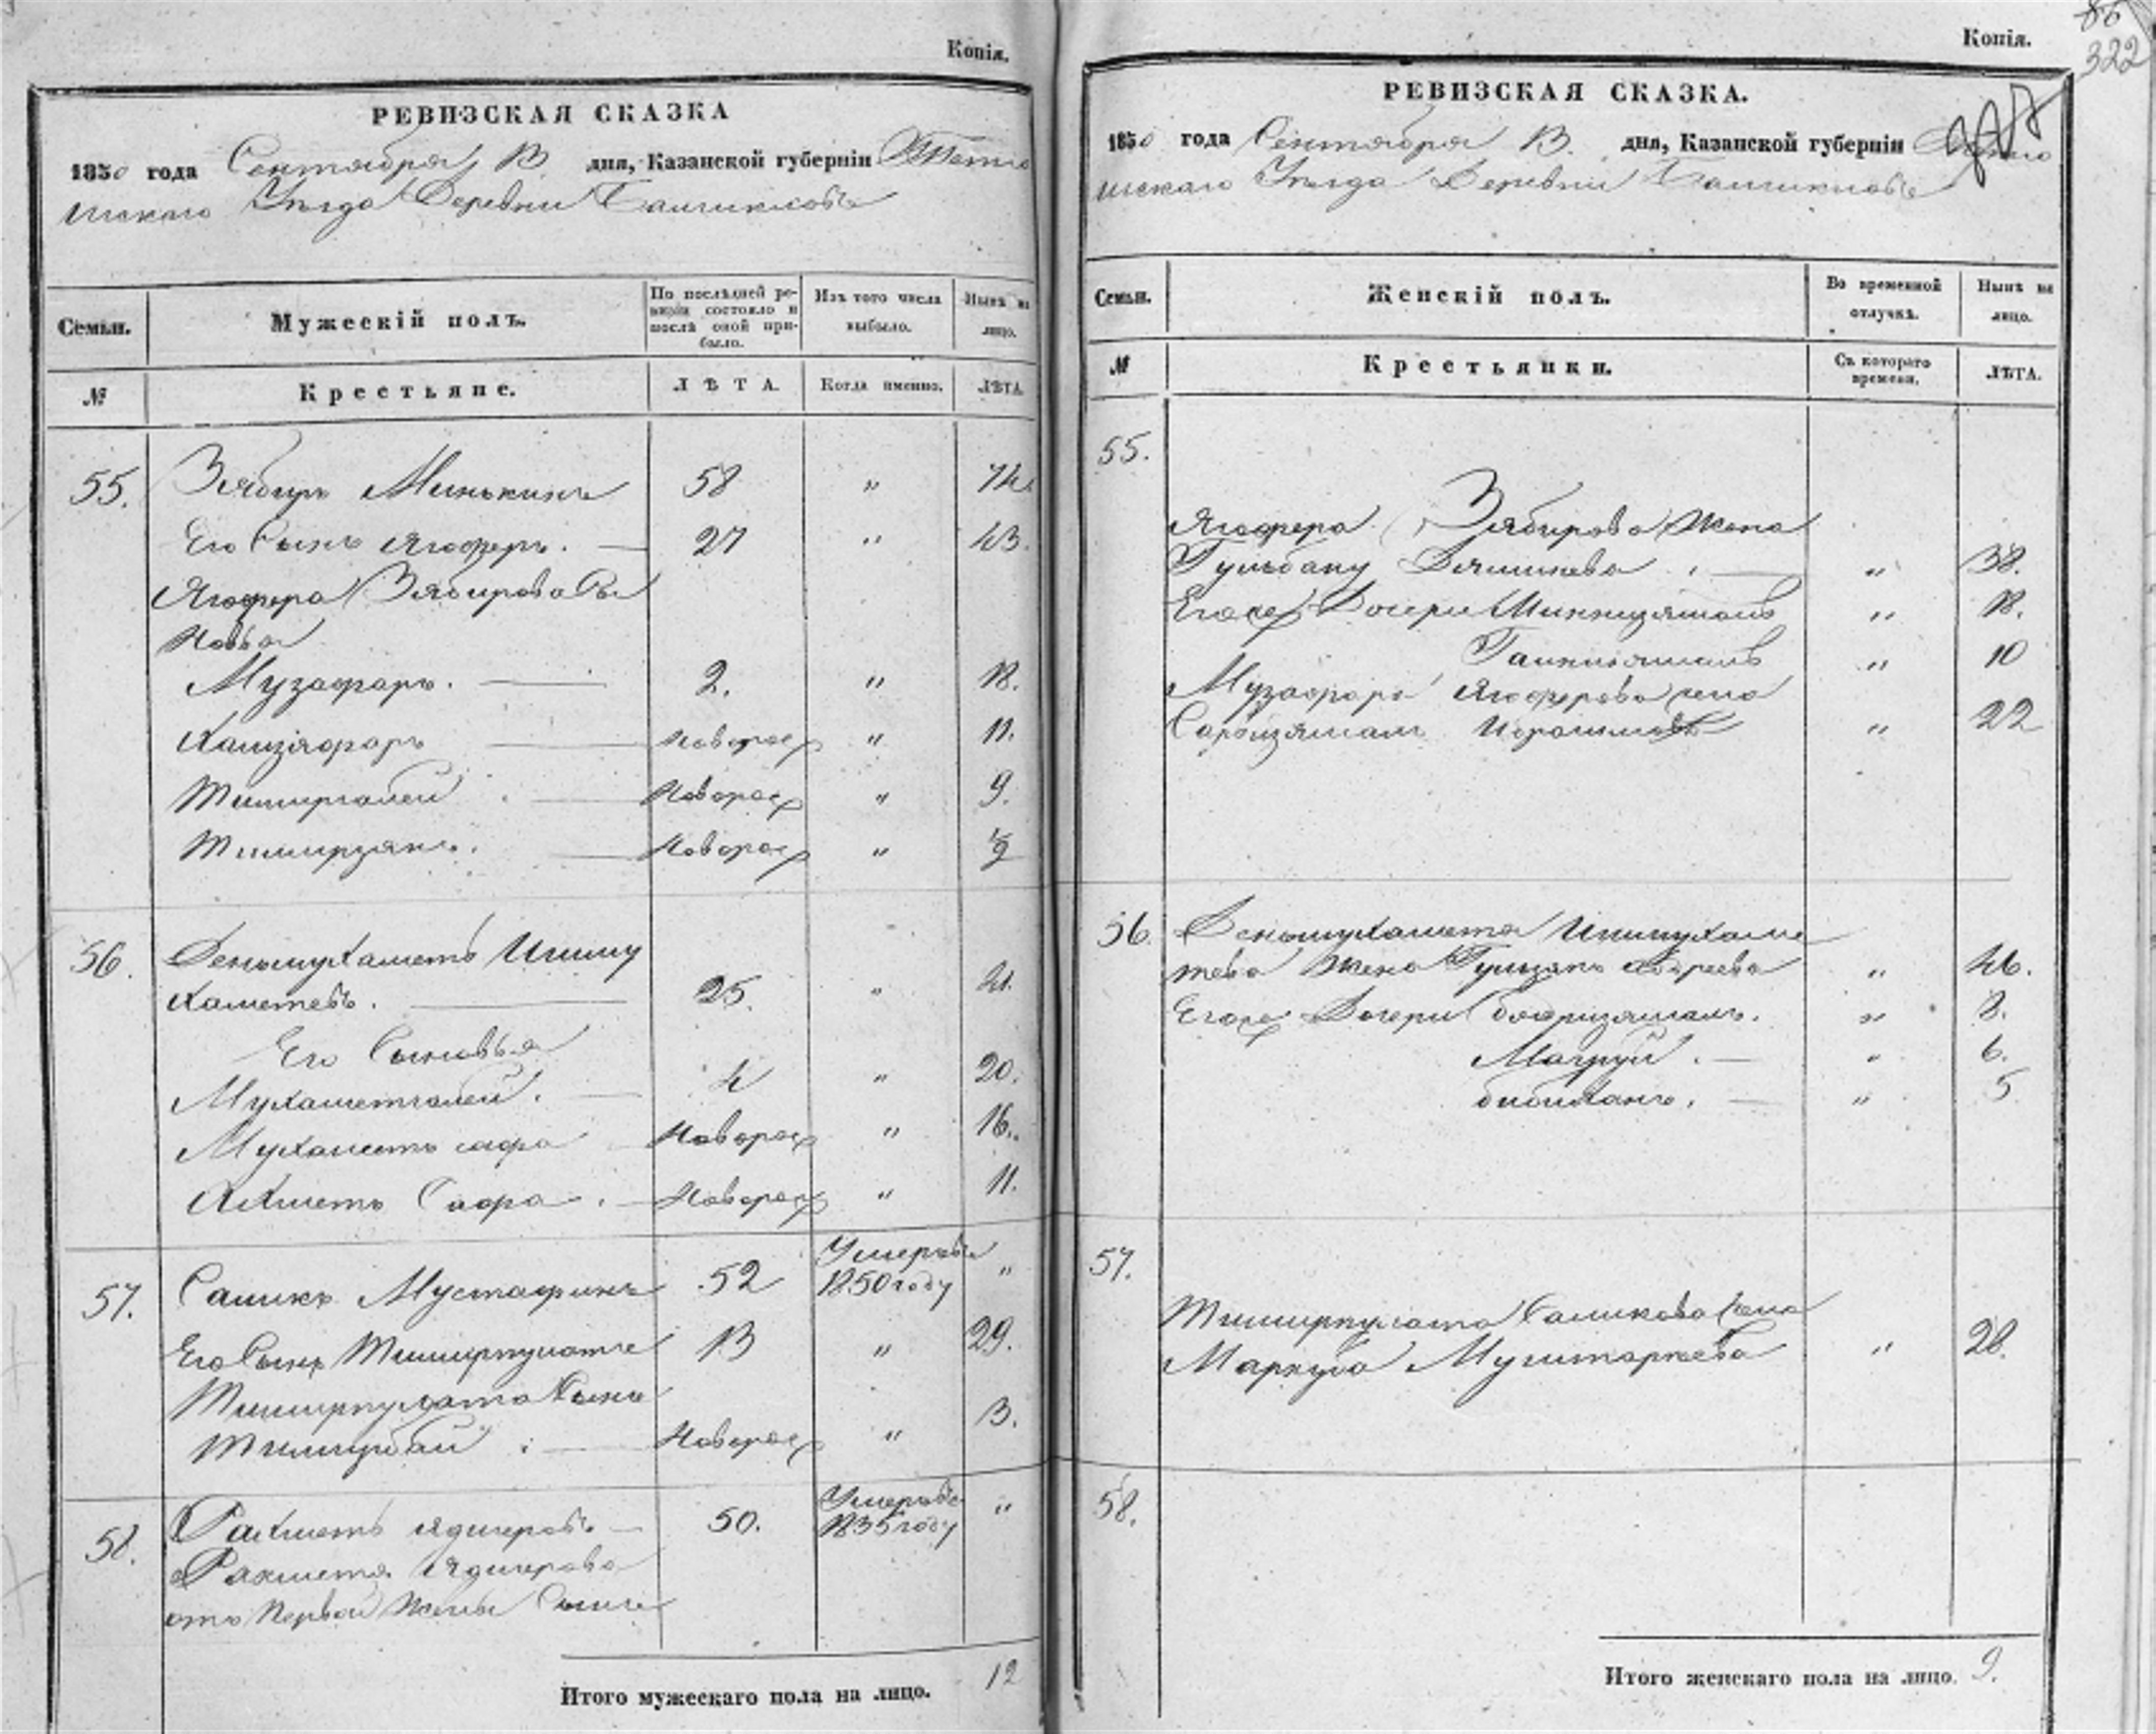 Копія.
РЕВИЗСКАЯ СКАЗКА
1850 года Сентября 13 дня, Казанской губерніи Тетю
шскаго Уѣзда Деревни
Семьи.
Мужескій полъ.
По послѣдней ре-
визіи состояло и
послѣ оной при-
было.
Изъ того числа
выбыло.
Нынѣ на
лицо.
№
Крестьяне.
ЛѢТА.
Когда именно.
ЛѢТА.
55. Зябиръ Минькинъ 58 " 74.
Его Сынъ Ягоферъ. 27 " 43.
Ягофера Зябирова Сы
новья
Музафаръ. 2. " 18.
новорож " 11.
Тимиргалей новорож " 9.
Тимирзянъ. новорож " 1/2
56. Деньмухаметъ Ишму
хаметевъ. 25. " 41.
Его Сыновья
Мухаметгалей. 4 " 20.
Мухаметъ сафа новорож " 16.
Ахметъ Сафа. новорож " 11.
57. Саликъ Мустафинъ 52 Умеръ въ 1850 году "
Его Сынъ Тимирпулатъ 13 " 29.
Тимирпулата Сынъ
Тимирбай новорож " 3.
58. Рахметъ Ядигеровъ 50. Умеръ въ 1835 году "
Рахмета Ядигерова
отъ первой жены Сынъ
Итого мужескаго пола на лицо. 12
86
322
Копія.
РЕВИЗСКАЯ СКАЗКА.
1850 года Сентября 13. дня, Казанской губерніи Тетю
шскаго Уѣзда Деревни
Семьи.
Женскій полъ.
Во временной
отлучкѣ.
Нынѣ на
лицо.
№
Крестьянки.
Съ котораго
времени.
ЛѢТА.
55.
Ягофера Зябирова Жена
Гульбану " 38.
Егоже Дочери " 18.
" 10
Музафара Ягоферова жена
" 22
56. Деньмухаметя Ишмухаме
тева Жена Гульзянъ " 46.
Егоже Дочери " 8.
" 6.
Бибиханъ. " 5
57.
Тимирпулата Саликова жена
" 28.
58.
Итого женскаго пола на лицо. 9.